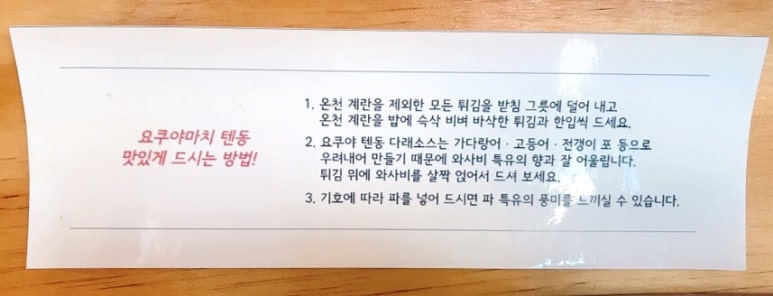 요쿠야마치 텐동
맛있게 드시는 방법!
1. 온천 계란을 제외한 모든 튀김을 받침 그릇에 덜어 내고
온천 계란을 밥에 슥삭 비벼 바삭한 튀김과 한입씩 드세요.
2. 요쿠야 텐동 다래소스는 가다랑어 · 고등어 · 전갱이 포 등으로
우려내어 만들기 때문에 와사비 특유의 향과 잘 어울립니다.
튀김 위에 와사비를 살짝 얹어서 드셔 보세요.
3. 기호에 따라 파를 넣어 드시면 파 특유의 풍미를 느끼실 수 있습니다.